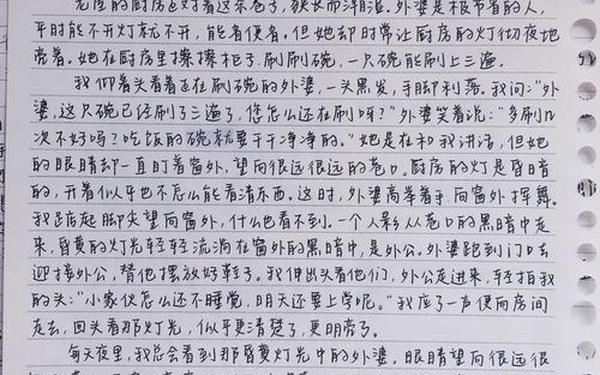 光里的厨房正对着这条巷子,狭长而洋溢。外婆是极节省的人,
平时能不开灯就不开,能省便省。但她却时常让厨房的灯彻夜地
亮着。她在厨房里擦擦柜子,刷刷碗,一只碗能刷上三遍。
我仰着头看着还在刷碗的外婆,一头黑发,手脚利落。我问:“外
婆,这只碗已经刷了三遍了,您怎么还在刷呀?”外婆笑着说:“多刷几
次不好吗?吃饭的碗就要干干净净的。”她是在和我讲话,但她
的眼睛却一直盯着窗外,望向很远很远的巷口。厨房的灯是昏暗
的,开着似乎也不怎么能看清东西。这时,外婆高举着手,向窗外挥舞。
我踮起脚尖望向窗外,什么也看不到。一个人影从巷口的黑暗中走
来,昏黄的灯光轻轻流淌在窗外的黑暗中,是外公。外婆跑到门口去
迎接外公,替他摆放好鞋子。我伸出头看他们,外公走进来,轻拍我
的头:“小家伙怎么还不睡觉,明天还要上学呢。”我应了一声便向房间
走去,回头看那灯光,似乎更清楚了,更明亮了。
每天夜里,我总会看到那昏黄灯光中的外婆,眼睛望向很远很